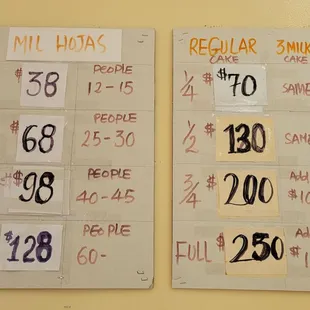 MIL HOJAS
$38 PEOPLE 12-15
$68 PEOPLE 25-30
$98 PEOPLE 40-45
$128 PEOPLE 60-
REGULAR CAKE 3 MILK CAKE
1/4 $70 SAME
1/2 $130 SAM
3/4 $200 Add $10
FULL $250 Ad $1